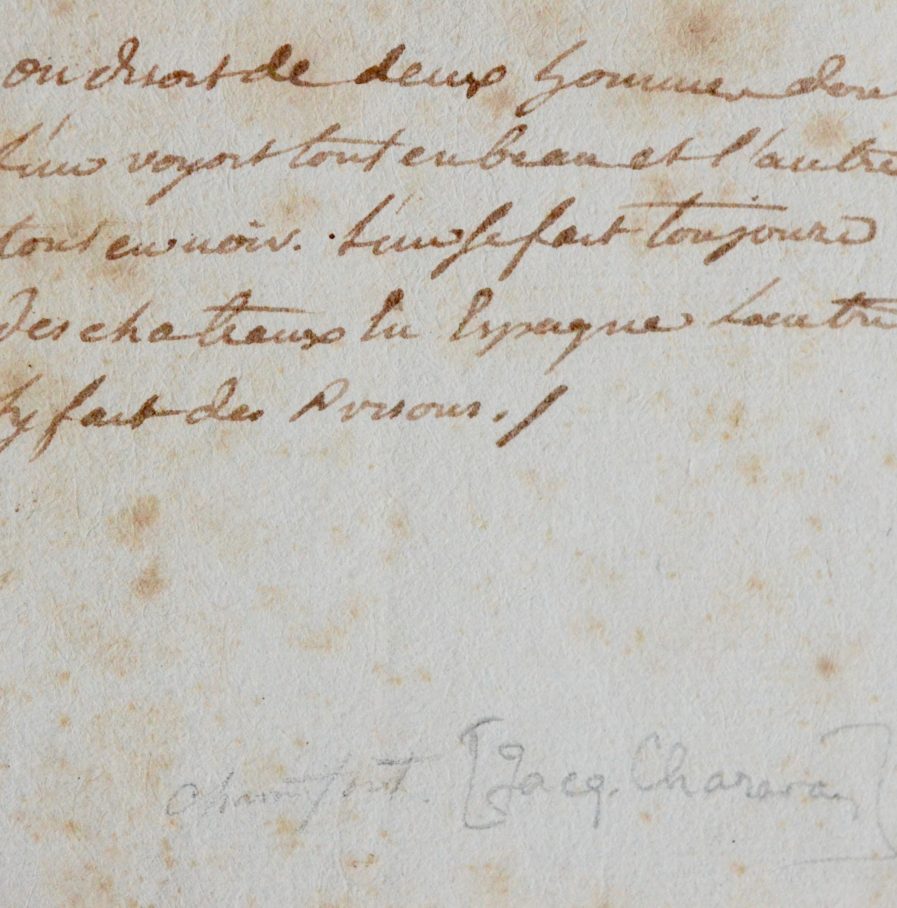 on disoit de deux hommes don
L'un voyoit tout en beau et l'autre
tout en noir. L'un se fait toujours
Des chateaux En Espagne Lautre
Sy fait des Prisons. /
Chamfort. [Jacq. Charavay]